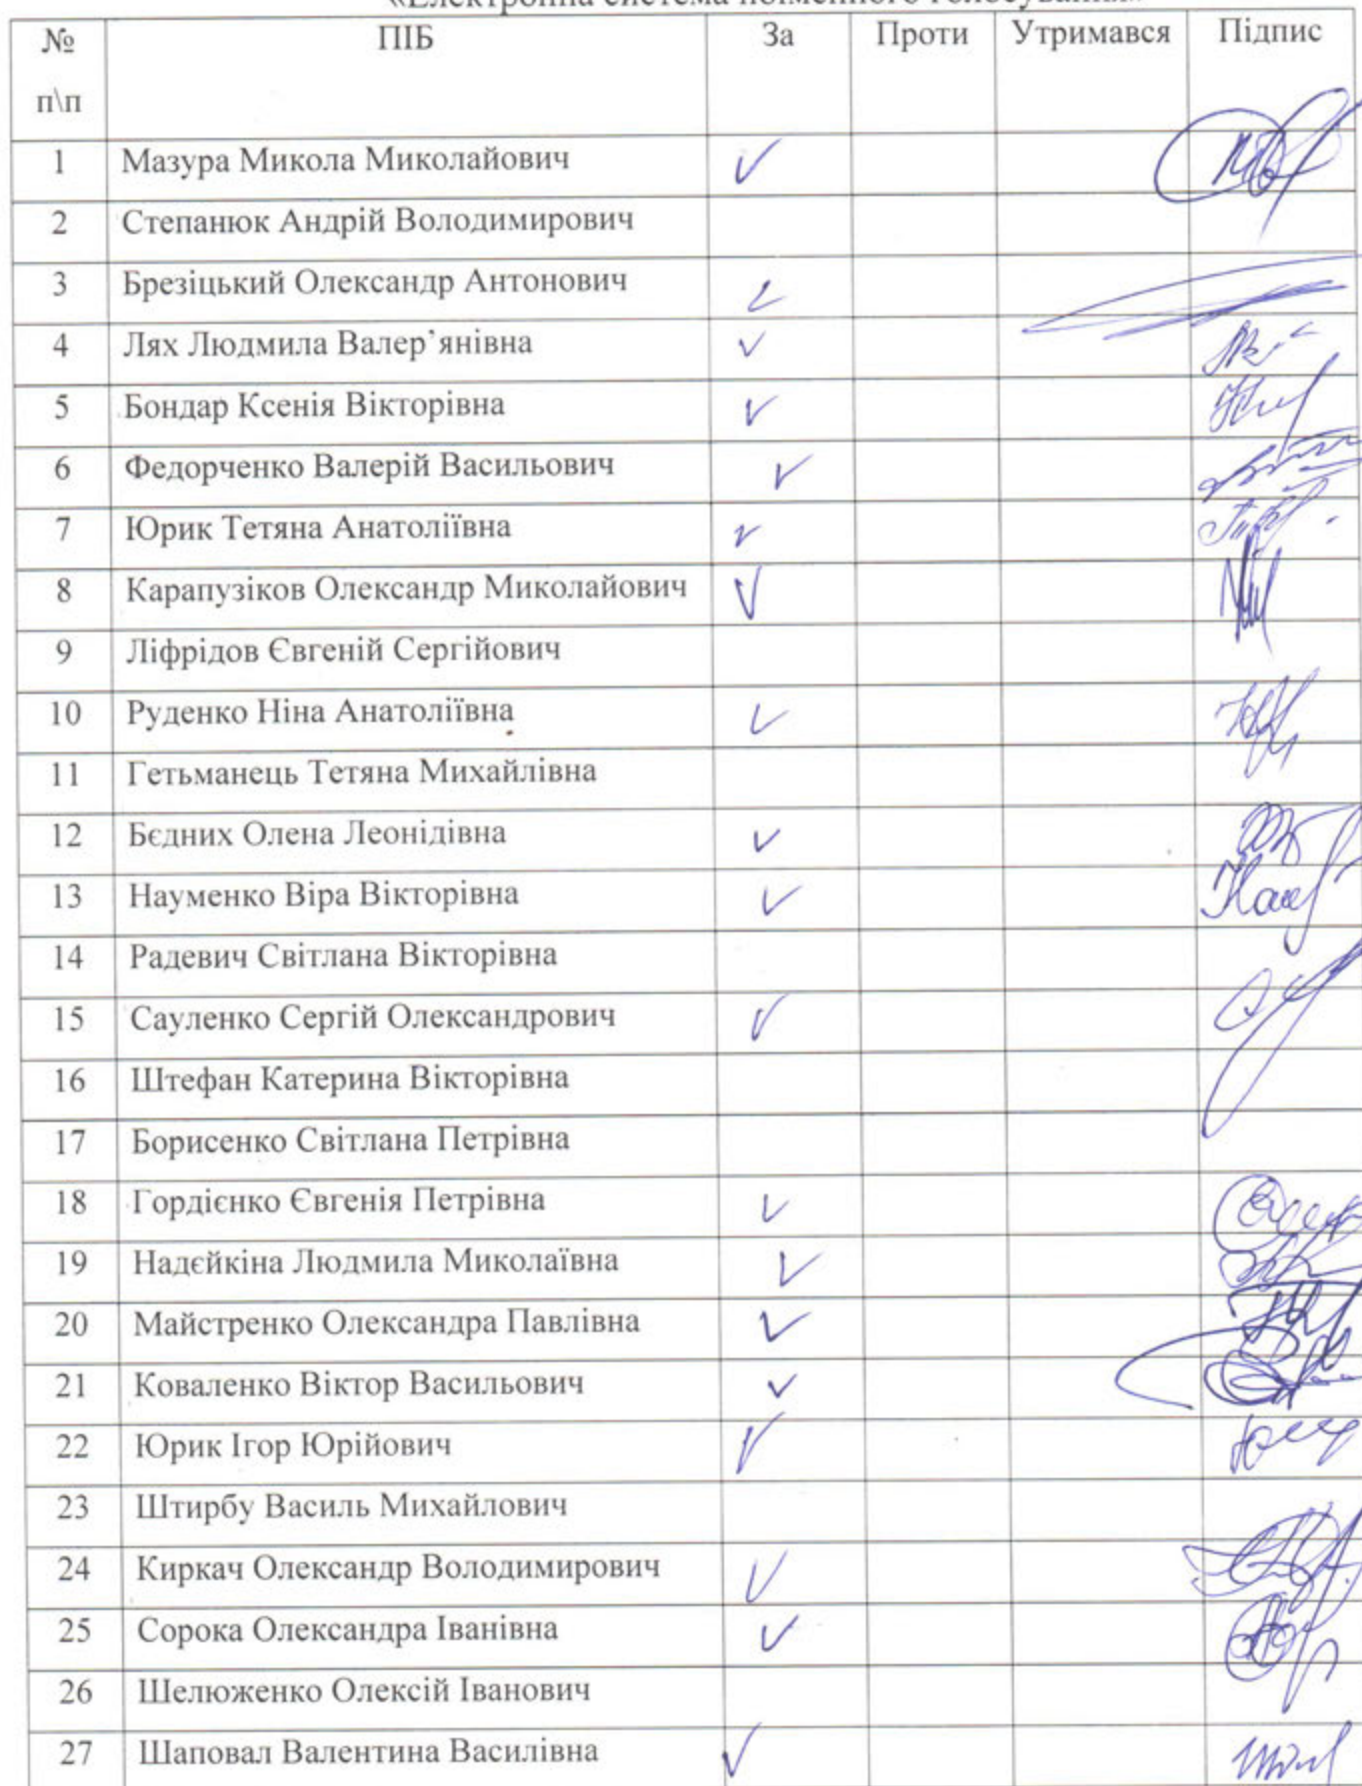 «Електронна система поіменного голосування»
№ п\п ПІБ За Проти Утримався Підпис
1 Мазура Микола Миколайович ✓
2 Степанюк Андрій Володимирович
3 Брезіцький Олександр Антонович ✓
4 Лях Людмила Валер’янівна ✓
5 Бондар Ксенія Вікторівна ✓
6 Федорченко Валерій Васильович ✓
7 Юрик Тетяна Анатоліївна ✓
8 Карапузіков Олександр Миколайович ✓
9 Ліфрідов Євгеній Сергійович
10 Руденко Ніна Анатоліївна ✓
11 Гетьманець Тетяна Михайлівна
12 Бєдних Олена Леонідівна ✓
13 Науменко Віра Вікторівна ✓
14 Радевич Світлана Вікторівна
15 Сауленко Сергій Олександрович ✓
16 Штефан Катерина Вікторівна
17 Борисенко Світлана Петрівна
18 Гордієнко Євгенія Петрівна ✓
19 Надєйкіна Людмила Миколаївна ✓
20 Майстренко Олександра Павлівна ✓
21 Коваленко Віктор Васильович ✓
22 Юрик Ігор Юрійович ✓
23 Штирбу Василь Михайлович
24 Киркач Олександр Володимирович ✓
25 Сорока Олександра Іванівна ✓
26 Шелюженко Олексій Іванович
27 Шаповал Валентина Василівна ✓